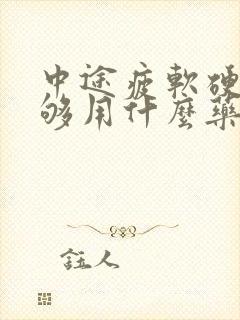 中途疲軟硬
够用什麼藥
鈺人